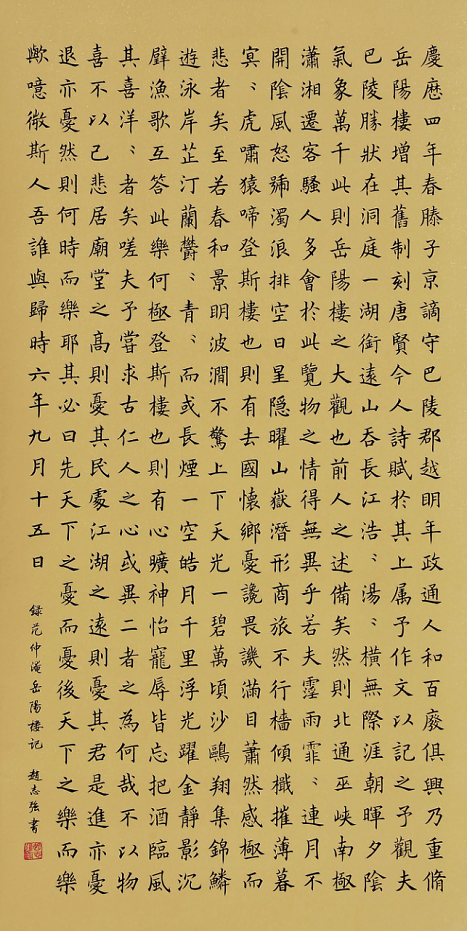 慶曆四年春滕子京謫守巴陵郡越明年政通人和百廢俱興乃重脩
岳陽樓增其舊制刻唐賢今人詩賦於其上属予作文以記之予觀夫
巴陵勝狀在洞庭一湖銜遠山吞長江浩〻湯〻橫無際涯朝暉夕陰
氣象萬千此則岳陽樓之大觀也前人之述備矣然則北通巫峽南極
瀟湘遷客騷人多會於此覽物之情得無異乎若夫霪雨霏〻連月不
開陰風怒號濁浪排空日星隱曜山嶽潛形商旅不行檣傾檝摧薄暮
冥〻虎嘯猿啼登斯樓也則有去國懷鄉憂讒畏譏滿目蕭然感極而
悲者矣至若春和景明波瀾不驚上下天光一碧萬頃沙鷗翔集錦鱗
遊泳岸芷汀蘭鬱〻青〻而或長煙一空皓月千里浮光躍金靜影沉
璧漁歌互答此樂何極登斯樓也則有心曠神怡寵辱皆忘把酒臨風
其喜洋〻者矣嗟夫予嘗求古仁人之心或異二者之為何哉不以物
喜不以己悲居廟堂之高則憂其民處江湖之遠則憂其君是進亦憂
退亦憂然則何時而樂耶其必曰先天下之憂而憂後天下之樂而樂
歟噫微斯人吾誰與歸時六年九月十五日
錄范仲淹岳陽樓記 趙志強書